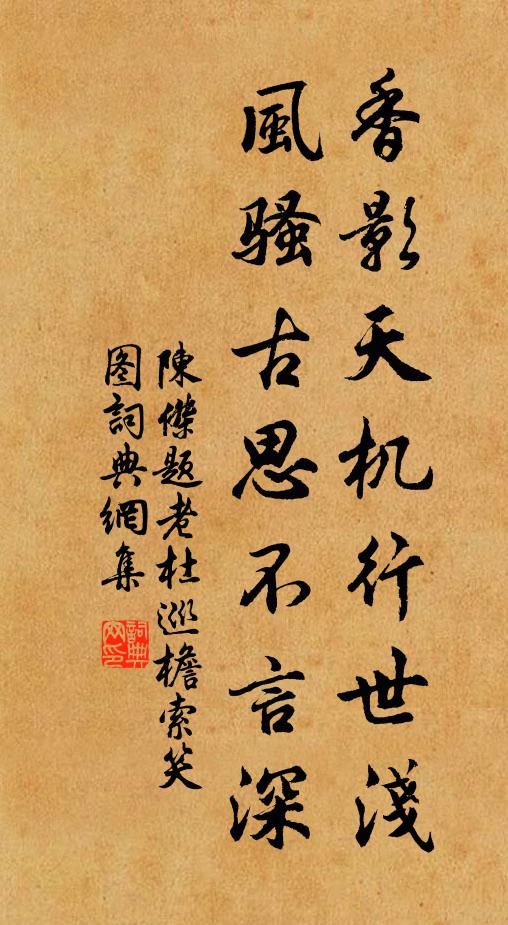 香影天机行世淺
風騷古思不言深
陳傑題老杜巡檐索笑
图詞典網集
詞典
网印